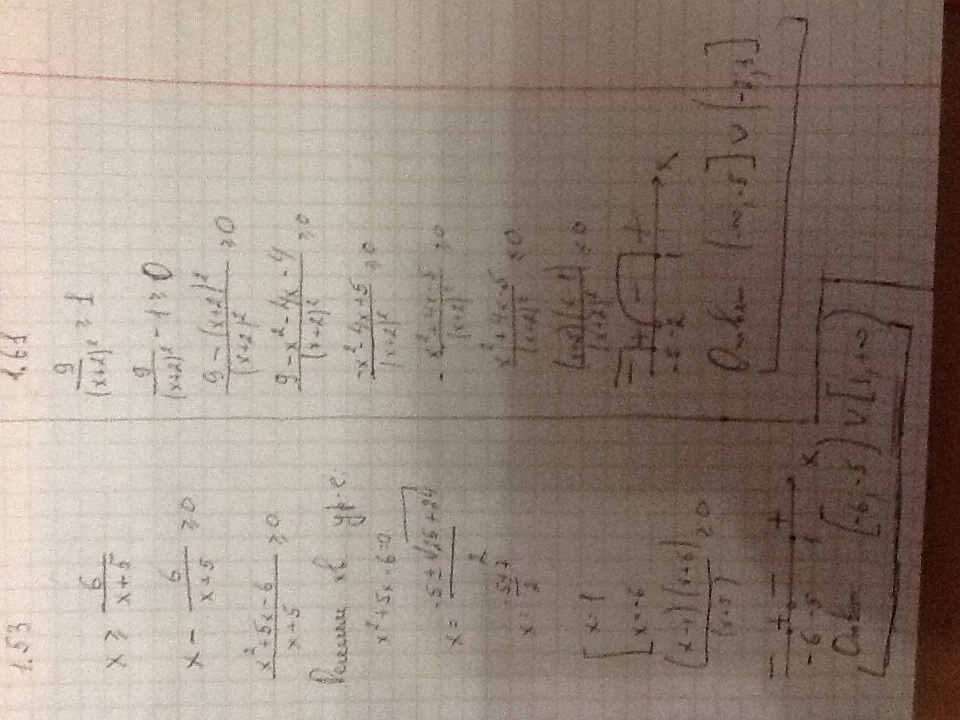 1.53
x ≥ 6/(x+5)
x - 6/(x+5) ≥ 0
(x²+5x-6)/(x+5) ≥ 0
Решим кв. ур-е
x²+5x-6=0
x = (-5±√(25+24))/2
x = (-5±7)/2
[ x=1
x=-6
(x-1)(x+6)/(x+5) ≥ 0
- + - +
-6 -5 1 x
Ответ [-6,-5) ∪ [1,+∞)
1.61
9/(x+2)² ≥ 1
9/(x+2)² - 1 ≥ 0
(9-(x+2)²)/(x+2)² ≥ 0
(9-x²-4x-4)/(x+2)² ≥ 0
(-x²-4x+5)/(x+2)² ≥ 0
(x+2)²
(x²+4x-5)/(x+2)² ≤ 0
-5 -2 1 x
Ответ